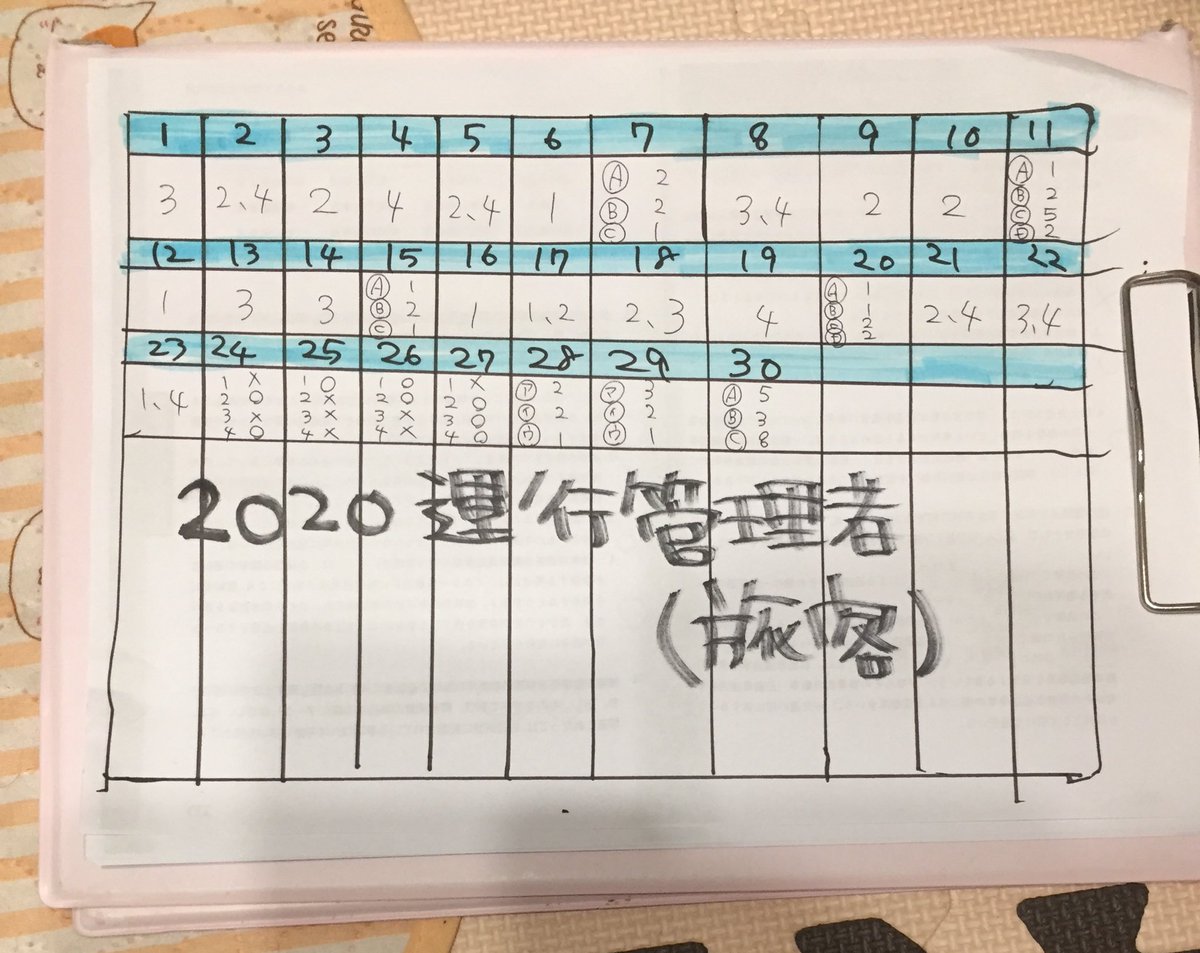 1 2 3 4 5 6 7 8 9 10 11
3 2、4 2 4 2、4 1 Ⓐ 2 Ⓑ 2 Ⓒ 1 3、4 2 2 Ⓐ 1 Ⓑ 2 Ⓒ 5 Ⓓ 2
12 13 14 15 16 17 18 19 20 21 22
1 3 3 Ⓐ 1 Ⓑ 2 Ⓒ 1 1 1、2 2、3 4 Ⓐ 1 Ⓑ 1 Ⓒ 2 Ⓓ 2 2、4 3、4
23 24 25 26 27 28 29 30
1、4 1 × 2 ○ 3 × 4 ○ 1 ○ 2 × 3 × 4 × 1 ○ 2 ○ 3 × 4 × 1 × 2 ○ 3 ○ 4 ○ ㋐ 2 ㋑ 2 ㋒ 1 ㋐ 3 ㋑ 2 ㋒ 1 Ⓐ 5 Ⓑ 3 Ⓒ 8
2020 運行管理者
(旅客)